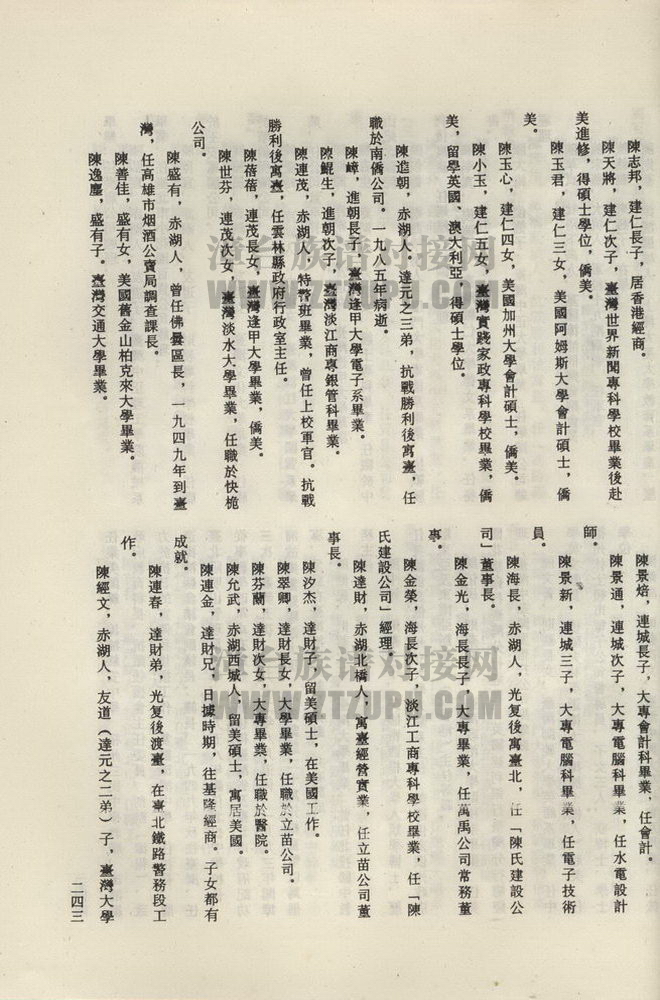 陳志邦，建仁長子，居香港經商。
陳天將，建仁次子，臺灣世界新聞專科學校畢業後赴
美進修，得碩士學位，僑美。
陳玉君，建仁三女，美國阿姆斯大學會計碩士，僑
美。
陳玉心，建仁四女，美國加州大學會計碩士，僑美。
陳小玉，建仁五女，臺灣實踐家政專科學校畢業，僑
美，留學英國、澳大利亞，得碩士學位。
陳進朝，赤湖人。達元之三弟，抗戰勝利後寓臺，任
職於南僑公司。一九八五年病逝。
陳嶂，進朝長子，臺灣逢甲大學電子系畢業。
陳鯤生，進朝次子，臺灣淡江商專銀管科畢業。
陳連茂，赤湖人，特警班畢業，曾任上校軍官。抗戰
勝利後寓臺，任雲林縣政府行政室主任。
陳蓓蓓，連茂長女，臺灣逢甲大學畢業，僑美。
陳世芬，連茂次女，臺灣淡水大學畢業，任職於快桅
公司。
陳盛有，赤湖人，曾任佛曇區長，一九四九年到臺
灣，任高雄市烟酒公賣局調查課長。
陳善佳，盛有女，美國舊金山柏克來大學畢業。
陳逸塵，盛有子。臺灣交通大學畢業。
陳景焙，連城長子，大專會計科畢業，任會計。
陳景通，連城次子，大專電腦科畢業，任水電設計
師。
陳景新，連城三子，大專電腦科畢業，任電子技術
員。
陳海長，赤湖人，光復後寓臺北，任「陳氏建設公
司」董事長。
陳金光，海長長子，大專畢業，任萬禹公司常務董
事。
陳金榮，海長次子，淡江工商專科學校畢業，任「陳
氏建設公司」經理。
陳達財，赤湖北橋人，寓臺經營實業，任立苗公司董
事長。
陳汐杰，達財子，留美碩士，在美國工作。
陳翠卿，達財長女，大學畢業，任職於立苗公司。
陳芬蘭，達財次女，大專畢業，任職於醫院。
陳允武，赤湖西城人，留美碩士，寓居美國。
陳連金，達財兄，日據時期，往基隆經商。子女都有
成就。
陳連春，達財弟，光复後渡臺，在臺北鐵路警務段工
作。
陳經文，赤湖人，友道（達元之二弟）子，臺灣大學
二四三
漳台族谱对接网
WWW.ZTZUPU.COM
漳台族谱对接网
WWW.ZTZUPU.COM